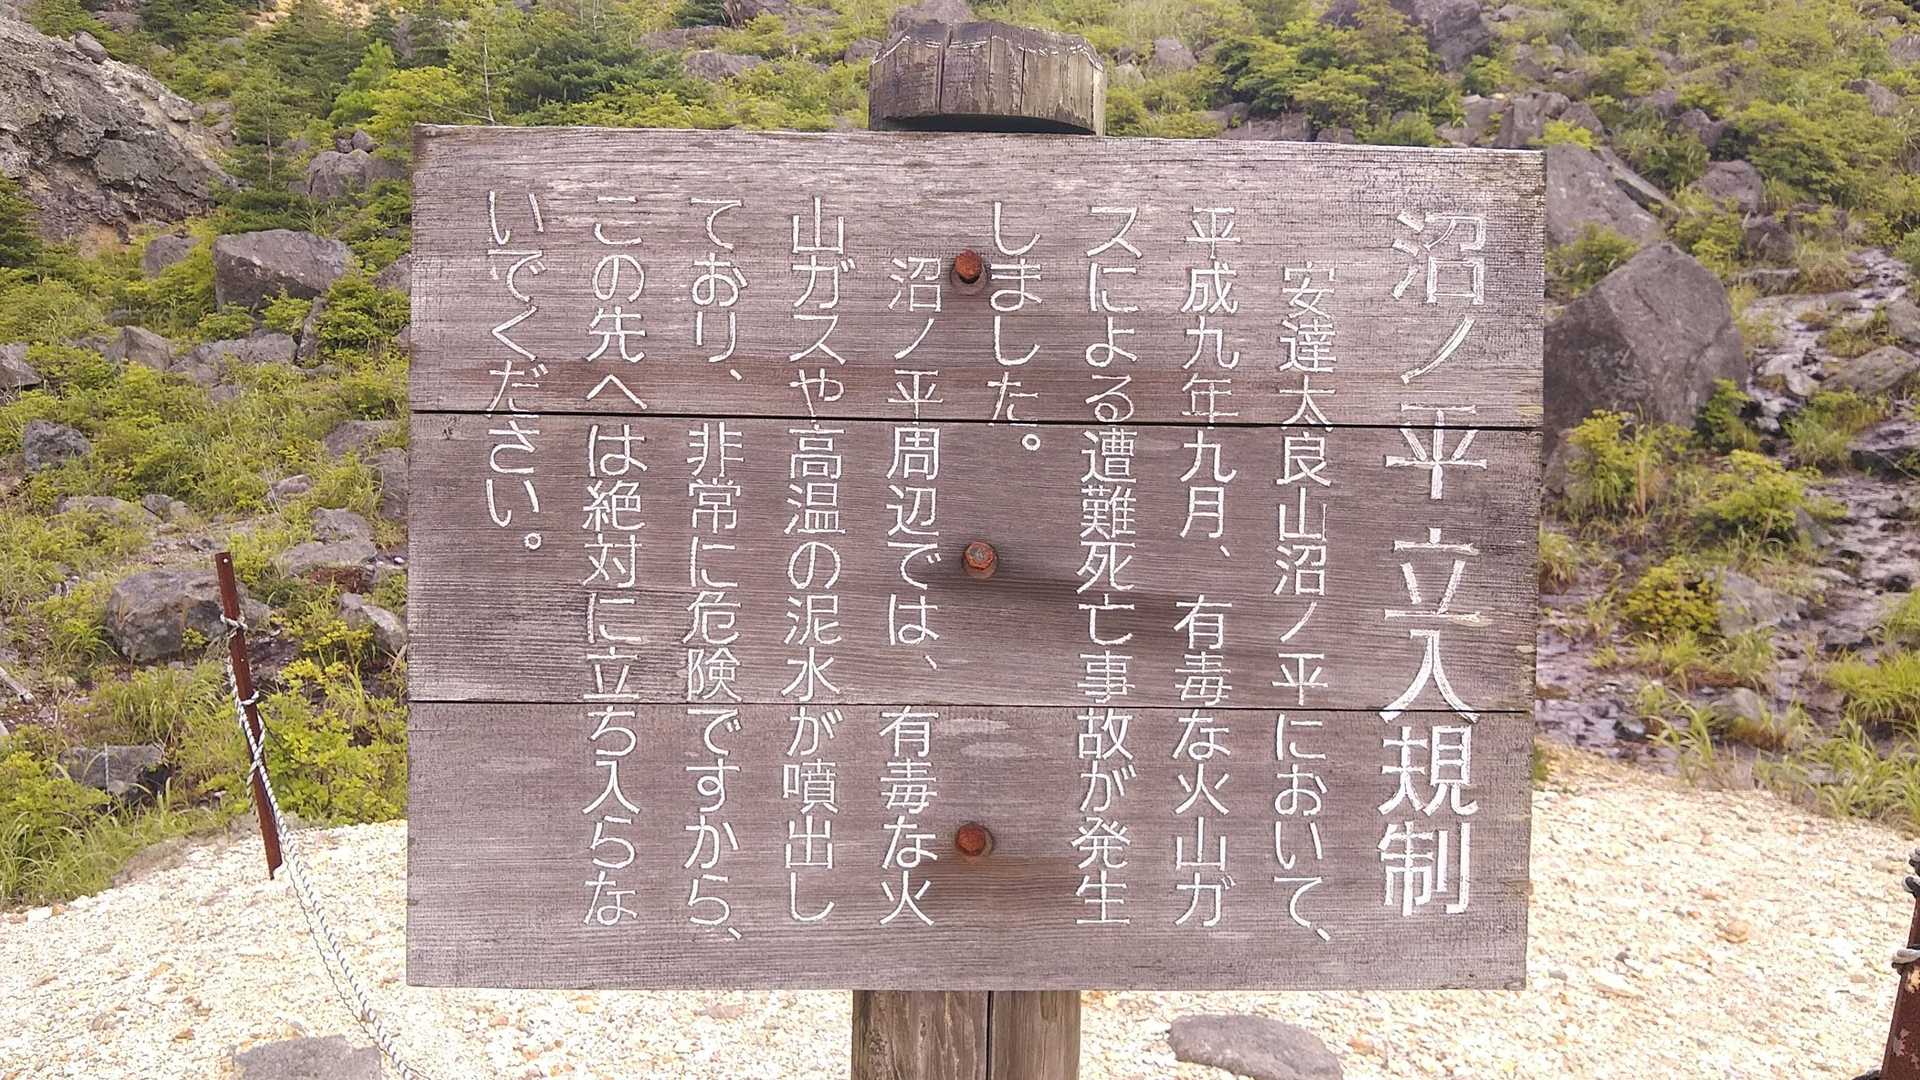 沼ノ平立入規制
安達太良山沼ノ平において、
平成九年九月、有毒な火山ガ
スによる遭難死亡事故が発生
しました。
沼ノ平周辺では、有毒な火
山ガスや高温の泥水が噴出し
ており、非常に危険ですから、
この先へは絶対に立ち入らな
いでください。